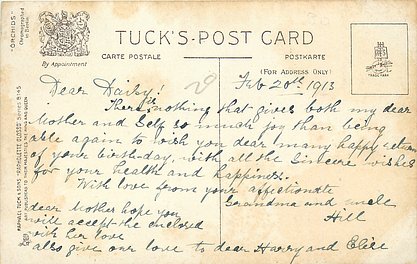 "ORCHIDS"
Chromographed
By Appointment
TUCK'S POST CARD
CARTE POSTALE
POSTKARTE
(FOR ADDRESS ONLY)
TRADE MARK
Feb 20th 1913
Dear Daisy!
There is nothing that gives both my dear
Mother and Self so much joy than being
able again to wish you dear many happy returns
of your birthday, with all the Sincere wishes
for your health and happiness.
With love from your affectionate
Grandma and uncle
Hill
dear Mother hope you
will accept the enclosed
with her love
also give our love to dear Harry and
RAPHAEL TUCK & SONS